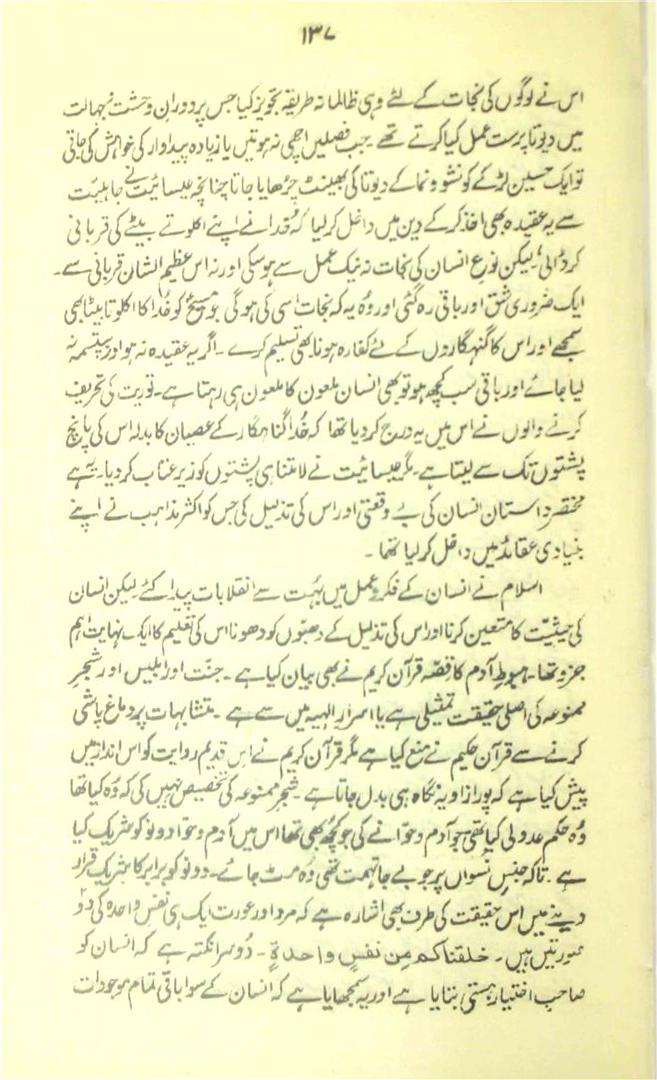 ۱۳۷
اس نے لوگوں کی نجات کے لئے وہی ظالمانہ طریقہ تجویز کیا جس پر دورانِ وحشت و جہالت
میں دیوتا پرست عمل کیا کرتے تھے۔ جب فصلیں اچھی نہ ہوتیں یا زیادہ پیداوار کی خواہش کی جاتی
تو ایک حسین لڑکے کو نشو و نما کے دیوتا کی بھینٹ چڑھایا جاتا چنانچہ عیسائیت نے جاہلیت
سے یہ عقیدہ بھی اخذ کر کے دین میں داخل کر لیا کہ خُدا نے اپنے اکلوتے بیٹے کی قربانی
کر ڈالی، لیکن نوعِ انسان کی نجات نہ نیک عمل سے ہو سکی اور نہ اس عظیم الشان قربانی سے۔
ایک ضروری شق اور باقی رہ گئی اور وُہ یہ کہ نجات اسی کی ہو گی جو مسیحؑ کو خُدا کا اکلوتا بیٹا بھی
سمجھے اور اس کا گنہگاروں کے لئے کفارہ ہونا بھی تسلیم کرے۔ اگر یہ عقیدہ نہ ہو اور بپتسمہ نہ
لیا جائے اور باقی سب کچھ ہو تو بھی انسان ملعون کا ملعون ہی رہتا ہے۔ توریت کی تحریف
کرنے والوں نے اس میں یہ درج کر دیا تھا کہ خُدا گناہگار کے عصیان کا بدلہ اس کی پانچ
پشتوں تک سے لیتا ہے۔ مگر عیسائیت نے لامتناہی پشتوں کو زیرِ عتاب کر دیا۔ یہ ہے
مختصر داستان انسان کی بے وقعتی اور اس کی تذلیل کی جس کو اکثر مذاہب نے اپنے
بنیادی عقائد میں داخل کر لیا تھا۔
اسلام نے انسان کے فکر و عمل میں بہُت سے انقلابات پیدا کئے لیکن انسان
کی حیثیّت کا متعین کرنا اور اس کی تذلیل کے دھبّوں کو دھونا اس کی تعلیم کا ایک نہایت اہم
جزو تھا۔ ہبوطِ آدم کا قصّہ قرآن کریم نے بھی بیان کیا ہے۔ جنّت اور ابلیس اور شجرِ
ممنوعہ کی اصلی حقیقت تمثیلی ہے یا اسرارِ الٰہیہ میں سے ہے۔ متشابہات پر دماغ پاشی
کرنے سے قرآن حکیم نے منع کیا ہے مگر قرآن کریم نے اس قدیم روایت کو اس انداز میں
پیش کیا ہے کہ پورا زاویۂ نگاہ ہی بدل جاتا ہے۔ شجرِ ممنوعہ کی تخصیص نہیں کی کہ وُہ کیا تھا
وُہ حکم عدولی کیا تھی جو آدم و حوّا نے کی جو کچھ بھی تھا اس میں آدم و حوّا دونو کو شریک کیا
ہے۔ تاکہ جنسِ نسواں پر جو بے جا تہمت تھی وُہ مٹ جائے۔ دونو کو برابر کا شریک قرار
دینے میں اس حقیقت کی طرف بھی اشارہ ہے کہ مرد اور عورت ایک ہی نفسِ واحدہ کی دو
صورتیں ہیں۔ خلقناکم من نفس واحدۃ۔ دُوسرا نکتہ ہے کہ انسان کو
صاحبِ اختیار ہستی بنایا ہے اور یہ سمجھایا ہے کہ انسان کے سوا باقی تمام موجودات